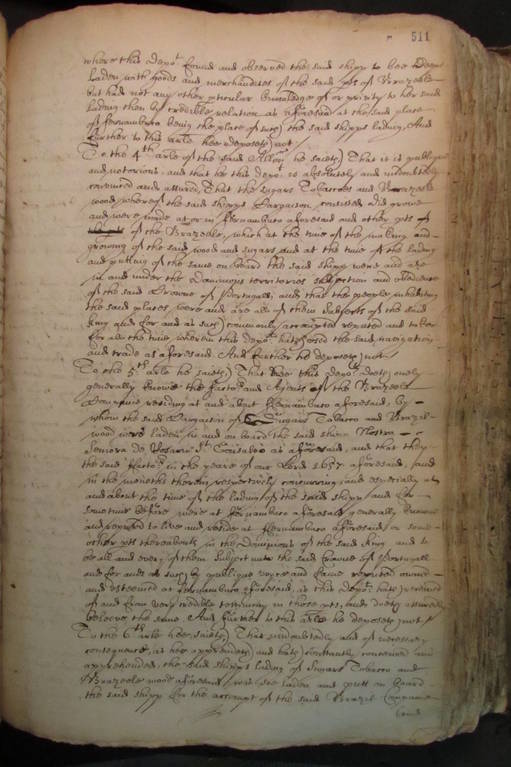 511
where this depot found and observed the said shipp to bee
laden with goods and merchandizes of the said pts of Brazeele
but had not any other pticular knowledge of or privity to her said
lading then by credible relation as aforesaid at the said place
of Fernambuco being the place of such the said shipps lading, And
further to this arle hee deposeth not
To the 4th arle of the said Allon he saieth That it is publique
and notorious, and that he this depot is absolutely and undoubtedly
convinced and assured That the sugars Tobaccoes and Brazeele
wood whereof the said shipps Cargaison consisted did growe
and were made at or in Fernambuco aforesaid and other pts of
of the Brazeele, which at the time of the making and
growing of the said wood and sugars and at the time of the lading
and putting of the same on board the said shipp were and are
in and under the Dominions territories subjection and obedience
of the said Crowne of Portugall, and that the people inhabiting
the said places were and are all of them subjects of the said
King and for and as such commonly accompted reputed and taken
for all the time wherein this depot hath used the said navigation
and trade as aforesaid. And further he deposeth not
To the 5th arle he saieth That hee this depot doeth onely
generally knowe the factors and Agents of the Brazeele
Companie residing at and about Fernambuco aforesaid, by
whom the said Cargaison of Sugars Tobacco and Brazil
wood were laden in and on board the said shipp Nostra
Senora de Rosario St Gonsalvo as aforesaid, and that they
the said factors in the yeare of our Lord 1657 aforesaid, and
in the moneths thereof respectively concurring and especially at
and about the time of the lading of the said shipp and for
some time before were at Fernambuco aforesaid generally knowne
and reputed to live and reside at Fernambuco aforesaid or some
other pts thereabouts in the Dominions of the said King and to
be all and every of them subject unto the said Crowne of Portugall
and for and as such by publique voyce and fame reputed owned
and esteemed at Fernambuco aforesaid, as this depot hath
of and from very credible testimony in those pts, and doeth assuredly
beleeve the same. And further to this arle he deposeth not
To the 6th arle hee saieth That undoubtedly and of necessary
consequence, as hee apprehendeth and hath constantly conceived and
apprehended, the said shipps lading of Sugars Tobacco and
Brazeele wood aforesaid, was soe laden and putt on board
the said shipp for the accompt of the said Brazil Companie